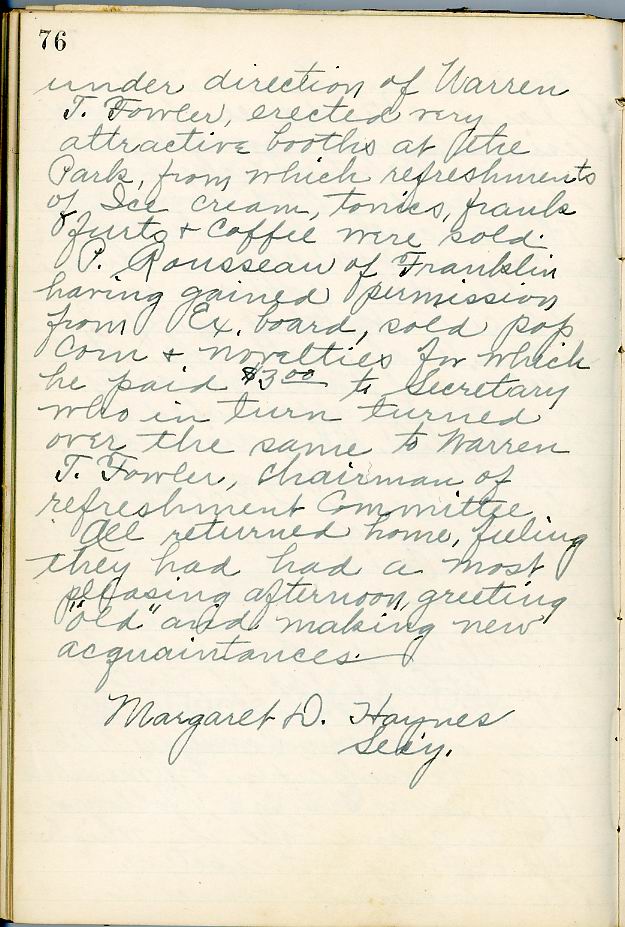 76
under direction of Warren
T. Fowler, erected very
attractive booths at the
Park, from which refreshments
of Ice cream, tonics, frank
furts + Coffee were sold.
P. Rousseau of Franklin
having gained permission
from Ex. board, sold pop
corn + novelties for which
he paid $3.00 to Secretary
who in turn turned
over the same to Warren
T. Fowler, Chairman of
refreshment Committee.
All returned home, feeling
they had had a most
pleasing afternoon, greeting
"old" and making new
acquaintances.
Margaret D. Haynes
Secy.